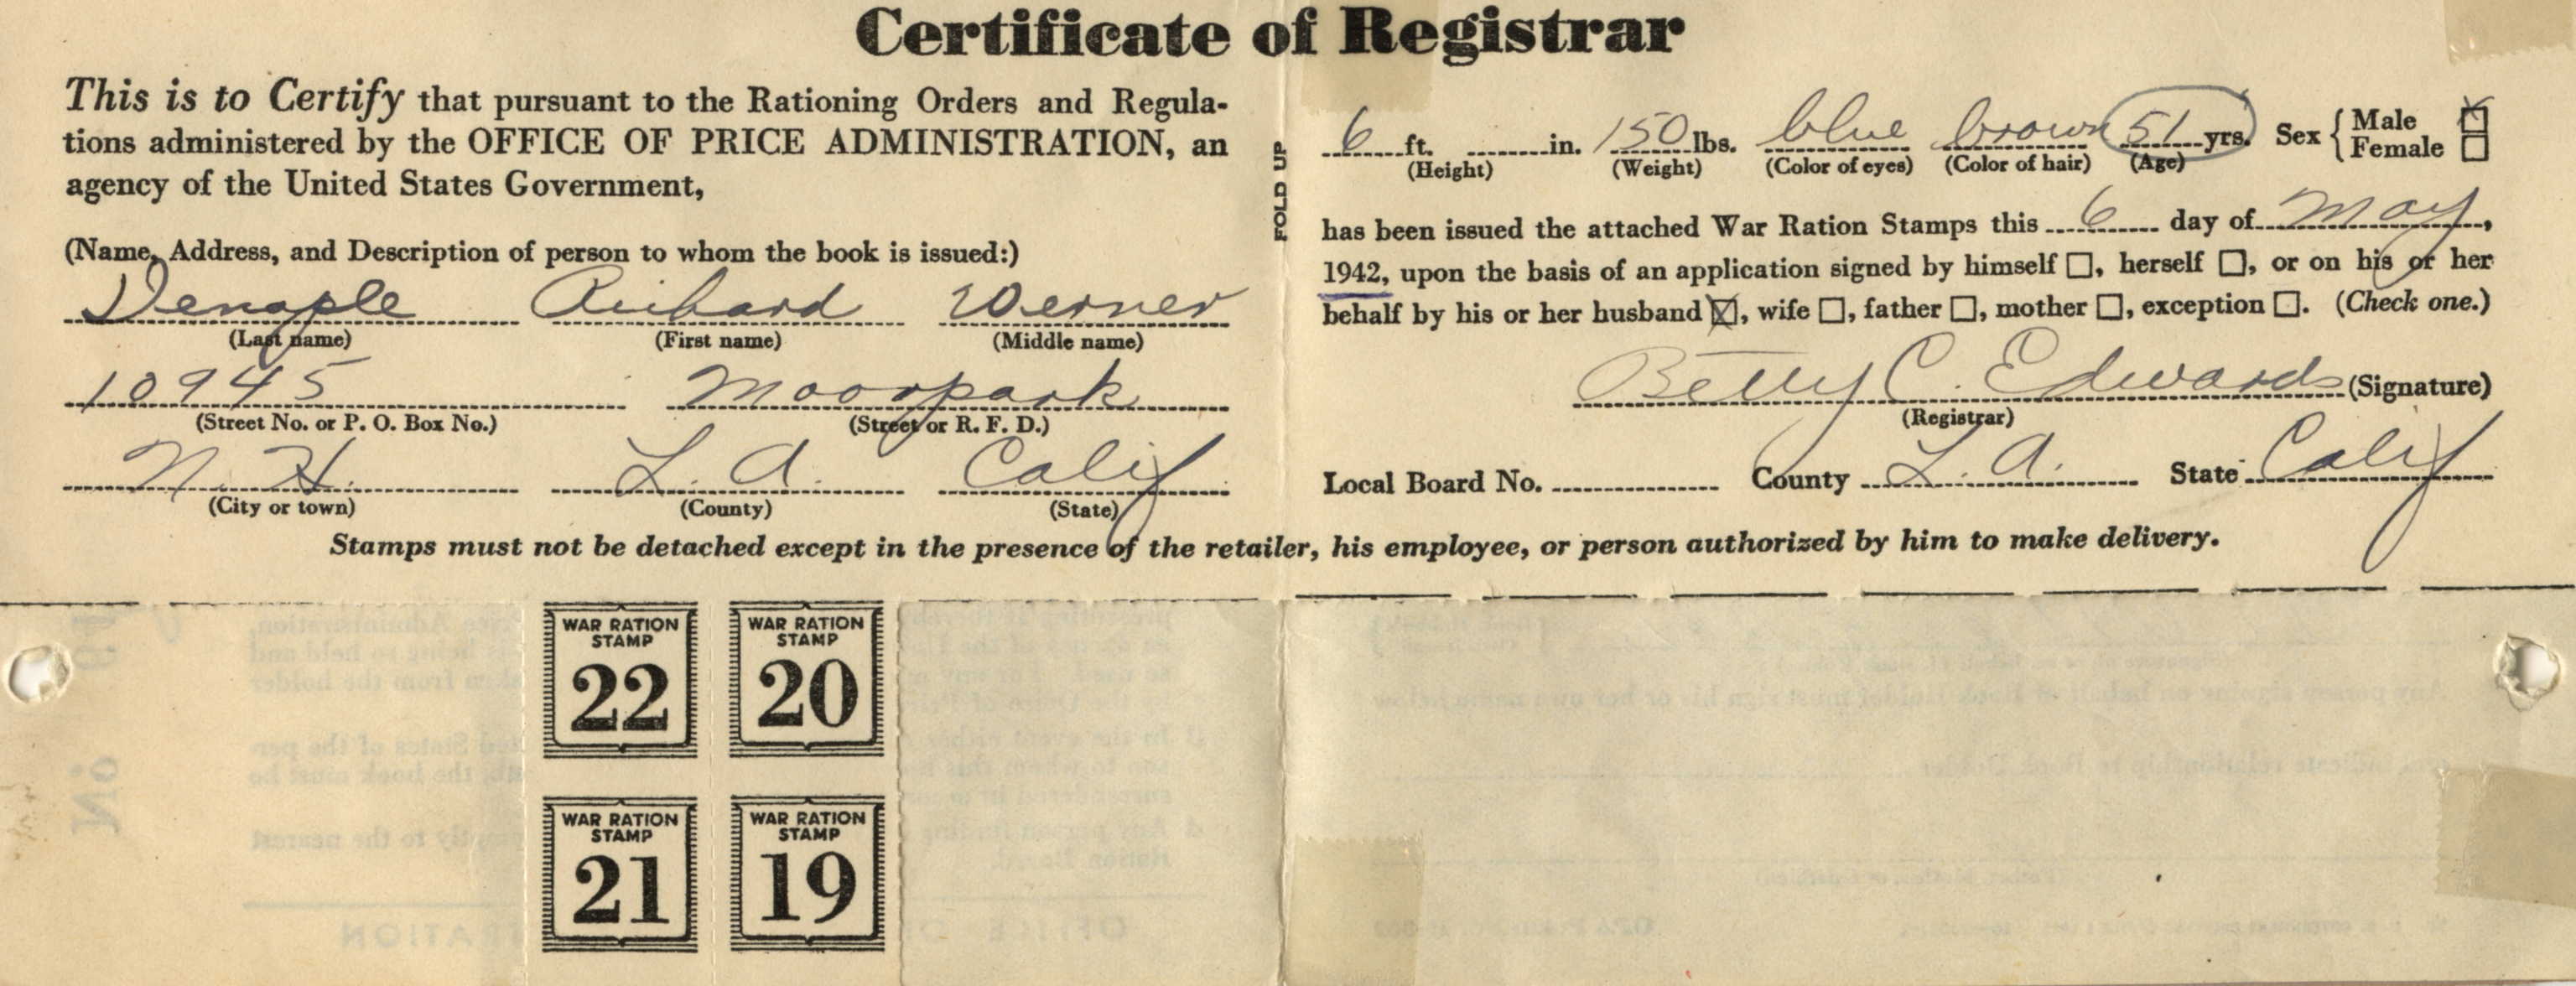 Certificate of Registrar
This is to Certify that pursuant to the Rationing Orders and Regula-
tions administered by the OFFICE OF PRICE ADMINISTRATION, an
agency of the United States Government,
(Name, Address, and Description of person to whom the book is issued:)
Denaple Richard Werner
(Last name) (First name) (Middle name)
10945 Moorpark
(Street No. or P. O. Box No.) (Street or R. F. D.)
N. H. L. A. Calif
(City or town) (County) (State)
FOLD UP
6 ft. in. 150 lbs. blue brown 51 yrs. Sex { Male
Female
(Height) (Weight) (Color of eyes) (Color of hair) (Age)
has been issued the attached War Ration Stamps this 6 day of May,
1942, upon the basis of an application signed by himself ☐, herself ☐, or on his or her
behalf by his or her husband ☒, wife ☐, father ☐, mother ☐, exception ☐. (Check one.)
Betty C. Edwards (Signature)
(Registrar)
Local Board No. County L. A. State Calif
Stamps must not be detached except in the presence of the retailer, his employee, or person authorized by him to make delivery.
WAR RATION
STAMP
22
WAR RATION
STAMP
20
WAR RATION
STAMP
21
WAR RATION
STAMP
19